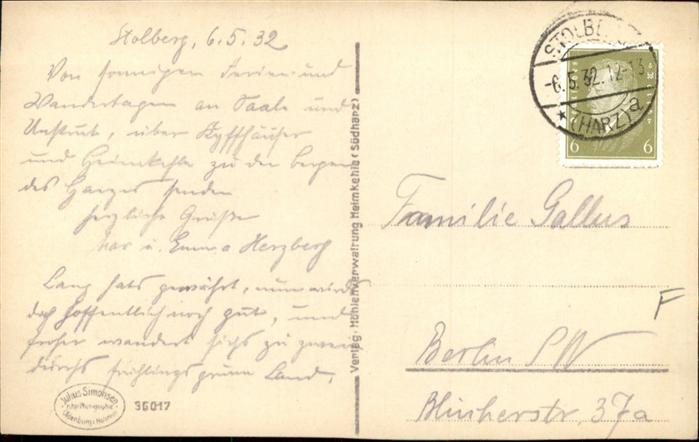 Stolberg, 6.5.32
Von sonnigen Ferien und
Wandertagen an Saale und
Unstrut, über Kyffhäuser
und Heimkehle zu den Bergen
des Harzes senden
herzliche Grüße
u. Emma Herzberg
Lang hats gewährt, nun wirds
doch hoffentlich noch gut, und
froher wandert sichs zu zweien
durchs frühlingsgrüne Land.
Julius Simonsen
36017
Verlag: Höhlenverwaltung Heimkehle (Südharz)
STOLBERG
-6.5.32.12-13
* (HARZ) a
6 6
Familie Gallus
F
Berlin SW
Blücherstr. 37a